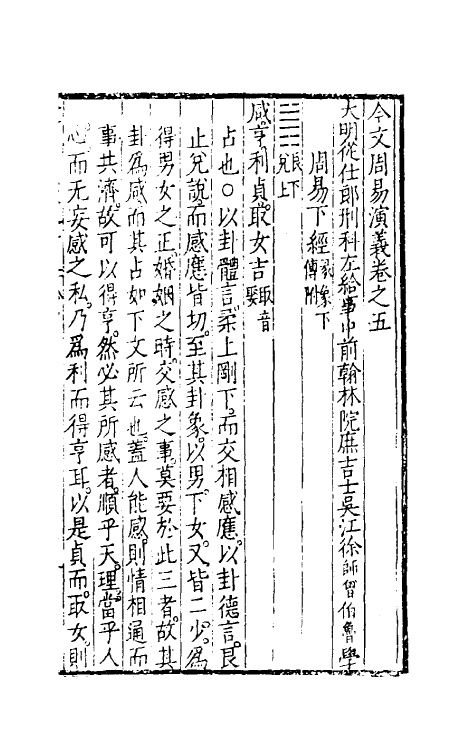 今文周易演義卷之五
大明從仕郎刑科左給事中前翰林院庶吉士吳江徐師曾伯魯學
周易下經彖象下傳附
艮下兌上
咸亨利貞取女吉取音娶
占也○以卦體言柔上剛下而交相感應以卦德言艮
止兌說而感應皆切至其卦象以男下女又皆二少為
得男女之正婚姻之時交感之事莫要於此三者故其
卦為咸而其占如下文所云也蓋人能感則情相通而
事共濟故可以得亨然必其所感者順乎天理當乎人
心而无妄感之私乃為利而得亨耳以是貞而取女則